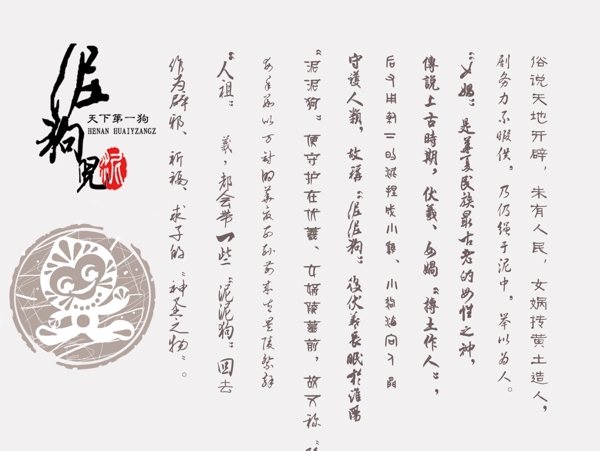 俗说天地开辟，未有人民，女娲抟黄土造人，
剧务力不暇供，乃仍绳于泥中，举以为人。
“女媧”是華夏民族最古老的女性之神，
傳說上古時期，伏羲、女媧“摶土作人”，
后又用剩
泥捏成小雞、小狗
守護人類，故稱“泥泥狗”後伏羲長眠於淮陽
“泥泥狗”便守护在伏羲、女娲陵墓前，故又称“陵
每年数以万计的
“人祖”
羲，都会带一些“泥泥狗”回去
作为辟邪、祈福、求子的“神圣之物”。
泥狗
天下第一狗
HENAN HUAIYZANGZ